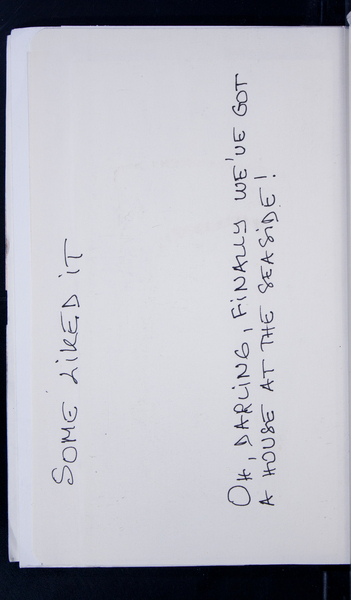 SOME LIKED IT
OH, DARLING, FINALLY WE'VE GOT
A HOUSE AT THE SEASIDE!